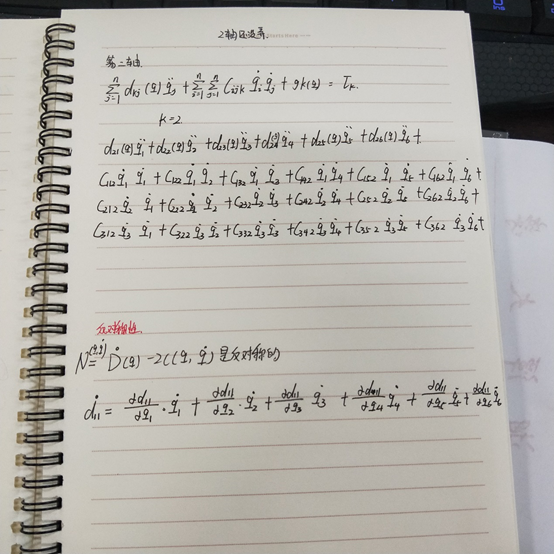 2轴
第二轴
∑_{j=1}^{n} d_{kj}(q) q̈_j + ∑_{i=1}^{n} ∑_{j=1}^{n} C_{ijk} q̇_i q̇_j + g_k(q) = τ_k
K=2
d₂₁(q)q̈₁ + d₂₂(q)q̈₂ + d₂₃(q)q̈₃ + d₂₄(q)q̈₄ + d₂₅(q)q̈₅ + d₂₆(q)q̈₆ +
C₁₁₂q̇₁ q̇₁ + C₁₂₂q̇₁q̇₂ + C₁₃₂q̇₁q̇₃ + C₁₄₂q̇₁q̇₄ + C₁₅₂q̇₁q̇₅ + C₁₆₂q̇₁q̇₆ +
C₂₁₂q̇₂ q̇₁ + C₂₂₂q̇₂q̇₂ + C₂₃₂q̇₂q̇₃ + C₂₄₂q̇₂q̇₄ + C₂₅₂q̇₂q̇₅ + C₂₆₂q̇₂q̇₆ +
C₃₁₂q̇₃ q̇₁ + C₃₂₂q̇₃q̇₂ + C₃₃₂q̇₃q̇₃ + C₃₄₂q̇₃q̇₄ + C₃₅₂q̇₃q̇₅ + C₃₆₂q̇₃q̇₆ +
反对称性
N(q,q̇) = Ḋ(q) - 2C(q, q̇) 是反对称的
ḋ₁₁ = ∂d₁₁/∂q₁ · q̇₁ + ∂d₁₁/∂q₂ · q̇₂ + ∂d₁₁/∂q₃ q̇₃ + ∂d₁₁/∂q₄ q̇₄ + ∂d₁₁/∂q₅ q̇₅ + ∂d₁₁/∂q₆ q̇₆